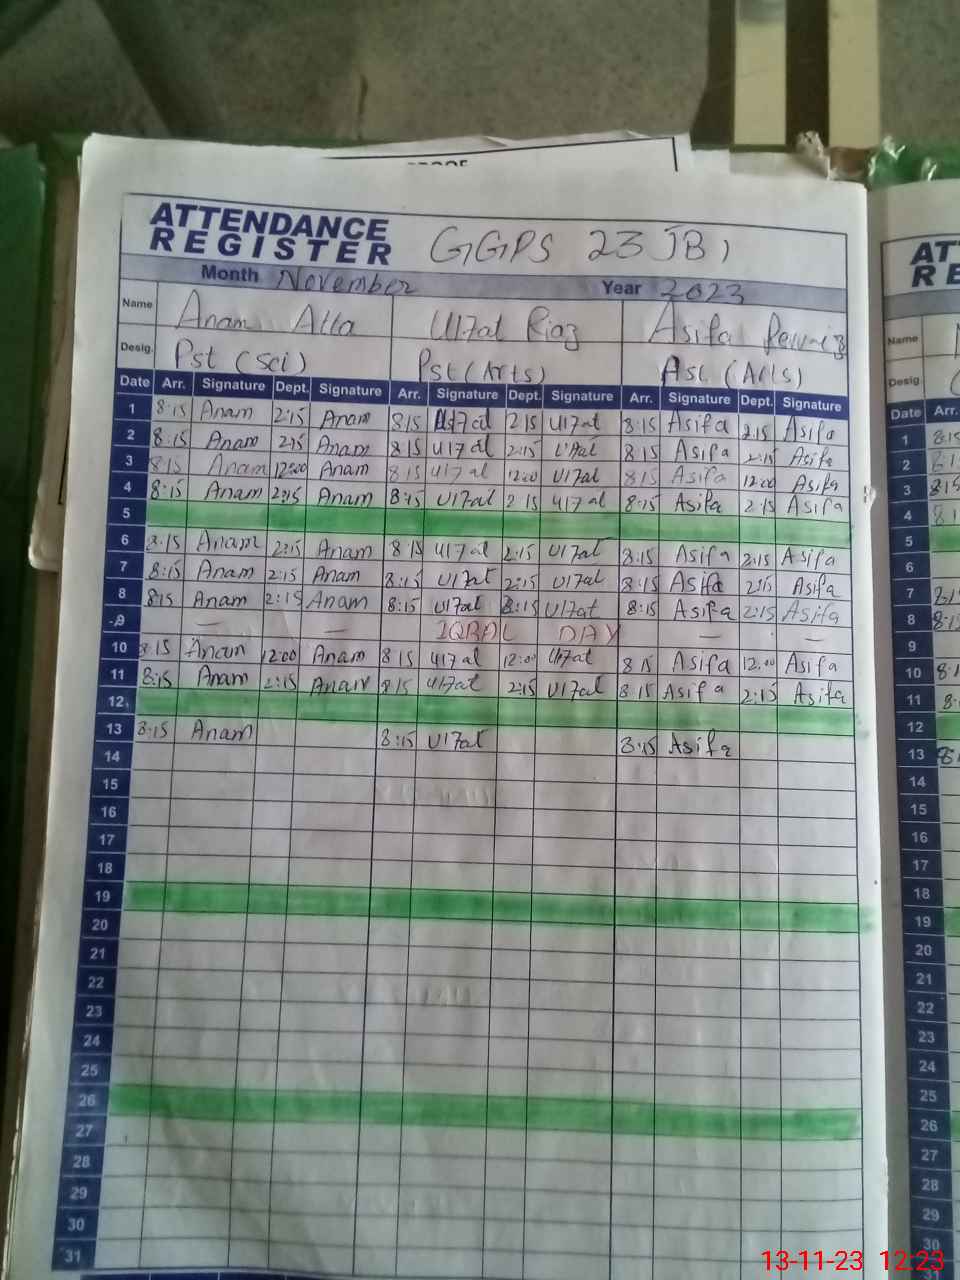 ATTENDANCE
REGISTER GGPS 23 JB 1
Month November Year 2023
Name Anam Atta Ulfat Riaz Asifa Pervaiz
Desig. Pst (Sci) Pst (Arts) Asc (Arts)
Date Arr. Signature Dept. Signature Arr. Signature Dept. Signature Arr. Signature Dept. Signature
1 8:15 Anam 2:15 Anam 8:15 Ulfat 2:15 Ulfat 8:15 Asifa 2:15 Asifa
2 8:15 Anam 2:15 Anam 8:15 Ulfat 2:15 Ulfat 8:15 Asifa 2:15 Asifa
3 8:15 Anam 12:00 Anam 8:15 Ulfat 12:00 Ulfat 8:15 Asifa 12:00 Asifa
4 8:15 Anam 2:15 Anam 8:15 Ulfat 2:15 Ulfat 8:15 Asifa 2:15 Asifa
5
6 8:15 Anam 2:15 Anam 8:15 Ulfat 2:15 Ulfat 8:15 Asifa 2:15 Asifa
7 8:15 Anam 2:15 Anam 8:15 Ulfat 2:15 Ulfat 8:15 Asifa 2:15 Asifa
8 8:15 Anam 2:15 Anam 8:15 Ulfat 2:15 Ulfat 8:15 Asifa 2:15 Asifa
9 — — IQBAL DAY — —
10 8:15 Anam 12:00 Anam 8:15 Ulfat 12:00 Ulfat 8:15 Asifa 12:00 Asifa
11 8:15 Anam 2:15 Anam 8:15 Ulfat 2:15 Ulfat 8:15 Asifa 2:15 Asifa
12
13 8:15 Anam 8:15 Ulfat 8:15 Asifa
14
15
16
17
18
19
20
21
22
23
24
25
26
27
28
29
30
31
Name
Desig.
Date Arr.
1 8:15
2 8:15
3 8:15
4 8:1
5
6
7 8:1
8 8:15
9
10 8:1
11 8:
12
13 8:
14
15
16
17
18
19
20
21
22
23
24
25
26
27
28
29
30
13-11-23 12:23